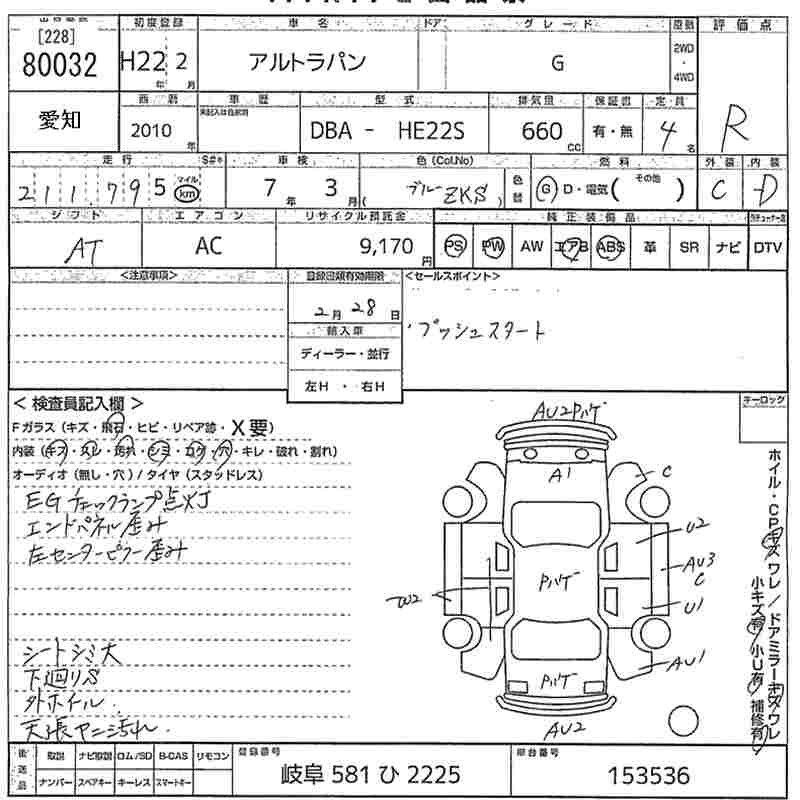 [228]
80032
初度登録
H22 2
年 月
車名
アルトラパン
ドア
グレード
G
駆動
2WD
・
4WD
評価点
R
愛知
西暦
2010 年
車歴
型式
DBA - HE22S
排気量
660 CC
保証書
有・無
定員
4 名
走行
211,795
マイル
km
S#*
車検
7年 3月
色(Col.No)
( ブルー ZKS )
色替
燃料
G D・電気 ( その他 )
外装
C
内装
D
シフト
AT
エアコン
AC
リサイクル預託金
9,170 円
純正装備品
PS PW AW エアB ABS 革 SR ナビ DTV
<注意事項>
登録書類有効期限
2月 28日
輸入車
ディーラー・並行
左H ・ 右H
<セールスポイント>
・プッシュスタート
< 検査員記入欄 >
Fガラス (キズ・飛石・ヒビ・リペア跡・X要)
内装 (キズ・スレ・汚れ・シミ・コゲ・穴・キレ・破れ・割れ)
オーディオ (無し・穴) / タイヤ (スタッドレス)
EGチェックランプ点灯
エンドパネル歪み
左センターピラー歪み
シートシミ大
下廻りS
外ホイル.
天張ヤニ汚れ.
キーロック
AU2Pハゲ
A1
C
U2
AU3
C
Pハゲ
W2
U1
AU1
Pハゲ
AU2
ホイル・CPキズ ワレ / ドアミラーキズワレ
小キズ有 小U有 補修有
後送品
取説 ナビ取説 ロム/SD B-CAS リモコン
ナンバー スペアキー キーレス スマートキー
登録番号
岐阜 581 ひ 2225
車台番号
153536